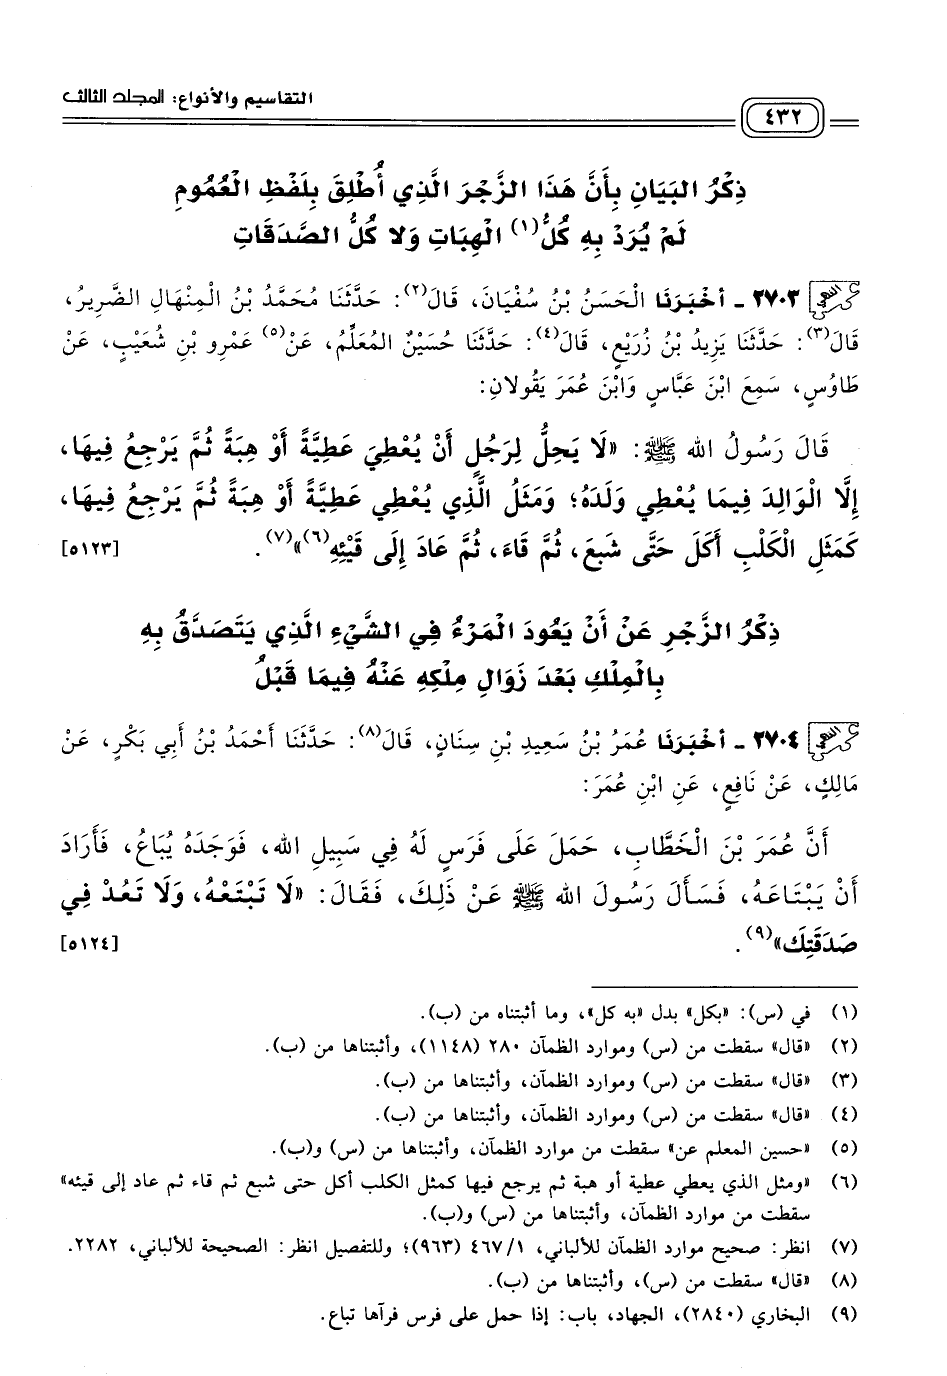 التقاسيم والأنواع: المجلد الثالث
٤٣٢
ذِكْرُ البَيَانِ بِأَنَّ هَذَا الزَّجْرَ الَّذِي أُطْلِقَ بِلَفْظِ الْعُمُومِ
لَمْ يُرَدْ بِهِ كُلُّ(١) الْهِبَاتِ وَلا كُلُّ الصَّدَقَاتِ
٢٧٠٣ - أَخْبَرَنَا الْحَسَنُ بْنُ سُفْيَانَ، قَالَ(٢): حَدَّثَنَا مُحَمَّدُ بْنُ الْمِنْهَالِ الضَّرِيرُ،
قَالَ(٣): حَدَّثَنَا يَزِيدُ بْنُ زُرَيْعٍ، قَالَ(٤): حَدَّثَنَا حُسَيْنٌ المُعَلِّمُ، عَنْ(٥) عَمْرِو بْنِ شُعَيْبٍ، عَنْ
طَاوُسٍ، سَمِعَ ابْنَ عَبَّاسٍ وَابْنَ عُمَرَ يَقُولانِ:
قَالَ رَسُولُ الله ﷺ: «لَا يَحِلُّ لِرَجُلٍ أَنْ يُعْطِيَ عَطِيَّةً أَوْ هِبَةً ثُمَّ يَرْجِعُ فِيهَا،
إِلَّا الْوَالِدَ فِيمَا يُعْطِي وَلَدَهُ؛ وَمَثَلُ الَّذِي يُعْطِي عَطِيَّةً أَوْ هِبَةً ثُمَّ يَرْجِعُ فِيهَا،
كَمَثَلِ الْكَلْبِ أَكَلَ حَتَّى شَبَعَ، ثُمَّ قَاءَ، ثُمَّ عَادَ إِلَى قَيْئِهِ(٦)»(٧). [٥١٢٣]
ذِكْرُ الزَّجْرِ عَنْ أَنْ يَعُودَ الْمَرْءُ فِي الشَّيْءِ الَّذِي يَتَصَدَّقُ بِهِ
بِالْمِلْكِ بَعْدَ زَوَالِ مِلْكِهِ عَنْهُ فِيمَا قَبْلُ
٢٧٠٤ - أَخْبَرَنَا عُمَرُ بْنُ سَعِيدِ بْنِ سِنَانٍ، قَالَ(٨): حَدَّثَنَا أَحْمَدُ بْنُ أَبِي بَكْرٍ، عَنْ
مَالِكٍ، عَنْ نَافِعٍ، عَنِ ابْنِ عُمَرَ:
أَنَّ عُمَرَ بْنَ الْخَطَّابِ، حَمَلَ عَلَى فَرَسٍ لَهُ فِي سَبِيلِ الله، فَوَجَدَهُ يُبَاعُ، فَأَرَادَ
أَنْ يَبْتَاعَهُ، فَسَأَلَ رَسُولَ الله ﷺ عَنْ ذَلِكَ، فَقَالَ: «لَا تَبْتَعْهُ، وَلَا تَعُدْ فِي
صَدَقَتِكَ»(٩). [٥١٢٤]
(١) في (س): «بكل» بدل «به كل»، وما أثبتناه من (ب).
(٢) «قال» سقطت من (س) وموارد الظمآن ٢٨٠ (١١٤٨)، وأثبتناها من (ب).
(٣) «قال» سقطت من (س) وموارد الظمآن، وأثبتناها من (ب).
(٤) «قال» سقطت من (س) وموارد الظمآن، وأثبتناها من (ب).
(٥) «حسين المعلم عن» سقطت من موارد الظمآن، وأثبتناها من (س) و(ب).
(٦) «ومثل الذي يعطي عطية أو هبة ثم يرجع فيها كمثل الكلب أكل حتى شبع ثم قاء ثم عاد إلى قيئه»
سقطت من موارد الظمآن، وأثبتناها من (س) و(ب).
(٧) انظر: صحيح موارد الظمآن للألباني، ٤٦٧/١ (٩٦٣)؛ وللتفصيل انظر: الصحيحة للألباني، ٢٢٨٢.
(٨) «قال» سقطت من (س)، وأثبتناها من (ب).
(٩) البخاري (٢٨٤٠)، الجهاد، باب: إذا حمل على فرس فرآها تباع.